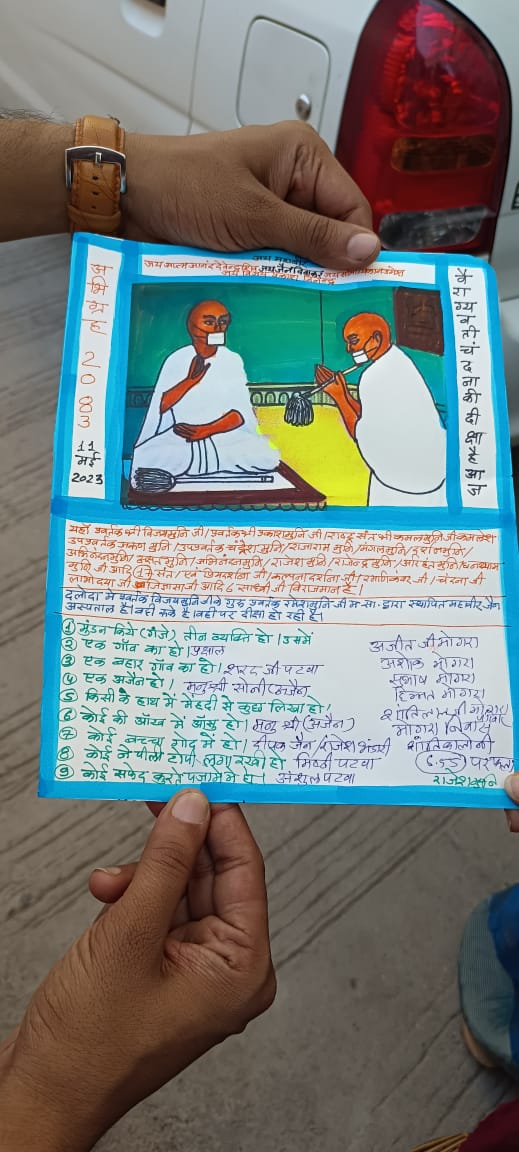 जय महावीर
जय आत्म आनंद देवेन्द्र शिव जय जैन दिवाकर
अभिग्रह 2083
11 मई 2023
वैराग्यवती चंदना की दीक्षा है आज
यहाँ प्रवर्तक श्री विजयमुनि जी / प्रवर्तक श्री प्रकाशमुनि जी / राष्ट्र संत श्री कमलमुनि जी कमलेश
उपप्रवर्तक अरुण मुनि / उपप्रवर्तक चंद्रेश मुनि / राजाराम मुनि / मंगलमुनि / दर्शनमुनि /
अभिनंदनमुनि / मुनि / अभिनंदनमुनि / राजेश मुनि / राजेन्द्र मुनि / मुनि / घनश्याम
मुनि जी आदि संत / एवं प्रियदर्शना जी / कल्पना दर्शना जी / रमणिककंवर जी / चंदना जी
जी / जिज्ञासा जी आदि 6 साध्वी जी विराजमान है।
दलोदा में प्रवर्तक विजयमुनिजी के गुरु प्रवर्तक रमेशमुनि जी म.सा. द्वारा स्थापित महावीर जैन
अस्पताल है। वही रुके है। वही पर दीक्षा हो रही है।
① मुंडन किये (गंजे) तीन व्यक्ति हो। उसमें
② एक गाँव का हो। प्रक्षाल
③ एक बहार गाँव का हो। शरद जी पटवा
④ एक अजैन हो। मनुश्री सोनी (अजैन)
⑤ किसी के हाथ में मेहंदी से कुछ लिखा हो।
⑥ कोई की आँख में आँसु हो। मनु श्री (अजैन)
⑦ कोई बच्चा गोद में हो। दीपक जैन / राजेश भंडारी
⑧ कोई ने पीली टोपी लगा रखी हो मिष्ठी पटवा
⑨ कोई सफेद कुरते पजामे में हो। अंशुल पटवा
अजीत जी मोगरा
अशोक मोगरा
सुभाष मोगरा
हिम्मत मोगरा
शांतिलाल जी मोगरा परिवार
मोगरा निवास
शांति कालोनी
6.55 पर फला
राजेश मुनि